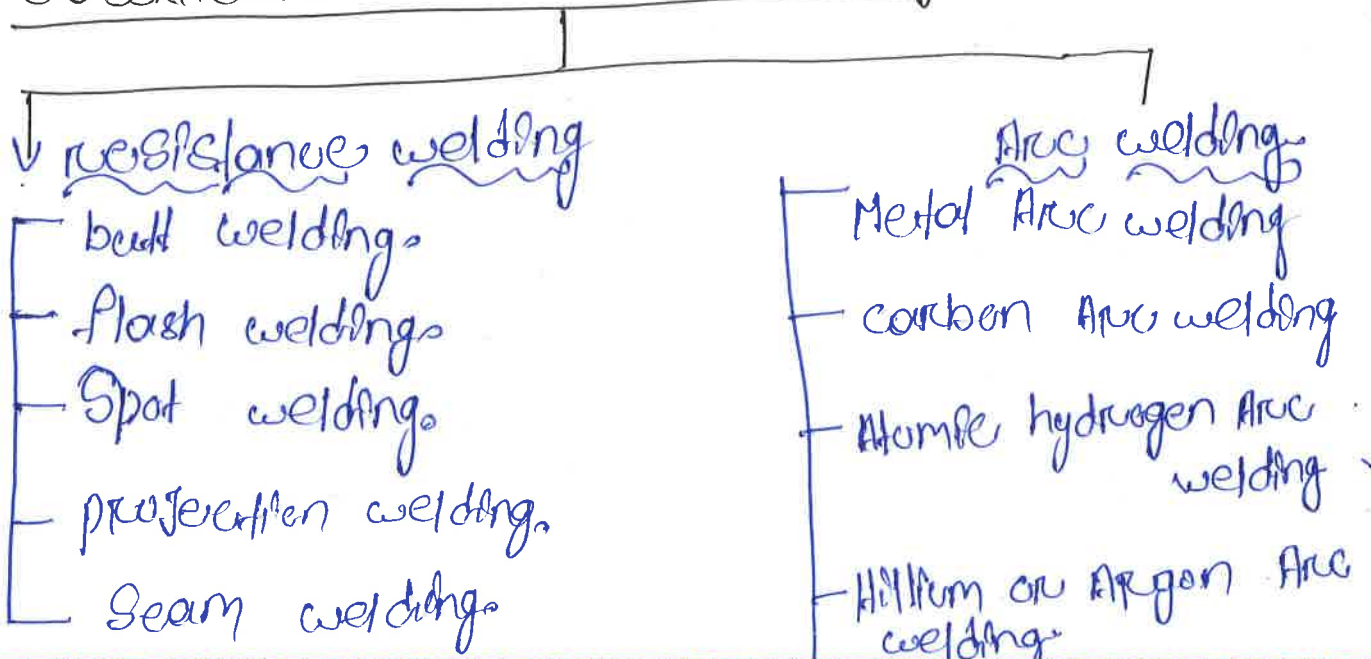 resistance welding
butt welding.
flash welding.
Spot welding.
projection welding.
Seam welding.
Arc welding.
Metal Arc welding
carbon Arc welding
Atomic hydrogen Arc
welding
Hillium or Argon Arc
welding.